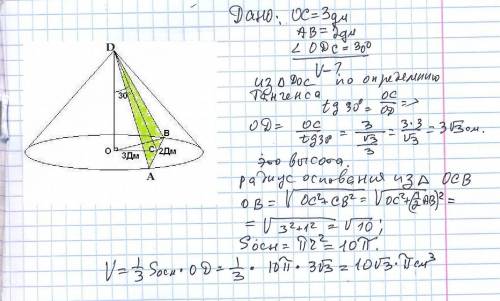 Дано: OC=3дм
AB=2дм
∠ODC=30°
V-?
D
30
O
3Дм
C
2Дм
B
A
из △DOC по определению
тангенса
tg 30° = OC/OD =>
OD = OC/tg30° = 3/(√3/3) = 3·3/√3 = 3√3 см.
это высота.
радиус основания из △ OCB
OB = √(OC²+CB²) = √(OC²+(½AB)²) =
= √(3²+1²) = √10;
Sосн = πr² = 10π.
V = 1/3 Sосн · OD = 1/3 · 10π · 3√3 = 10√3 · π см³